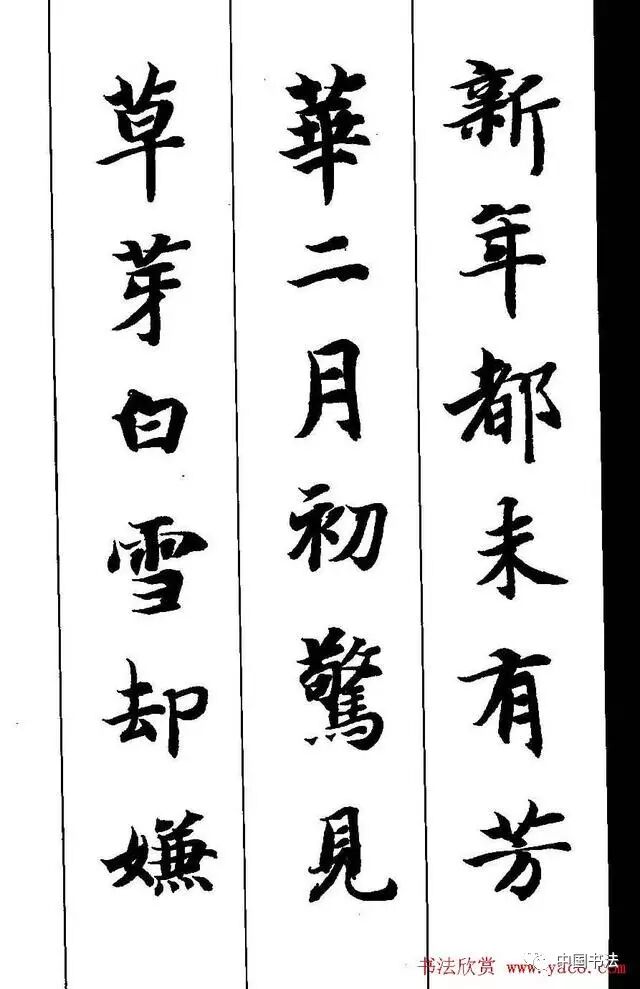 新年都未有芳
華二月初驚見
草芽白雪却嫌
中国书法
书法欣赏 www.yac8.com